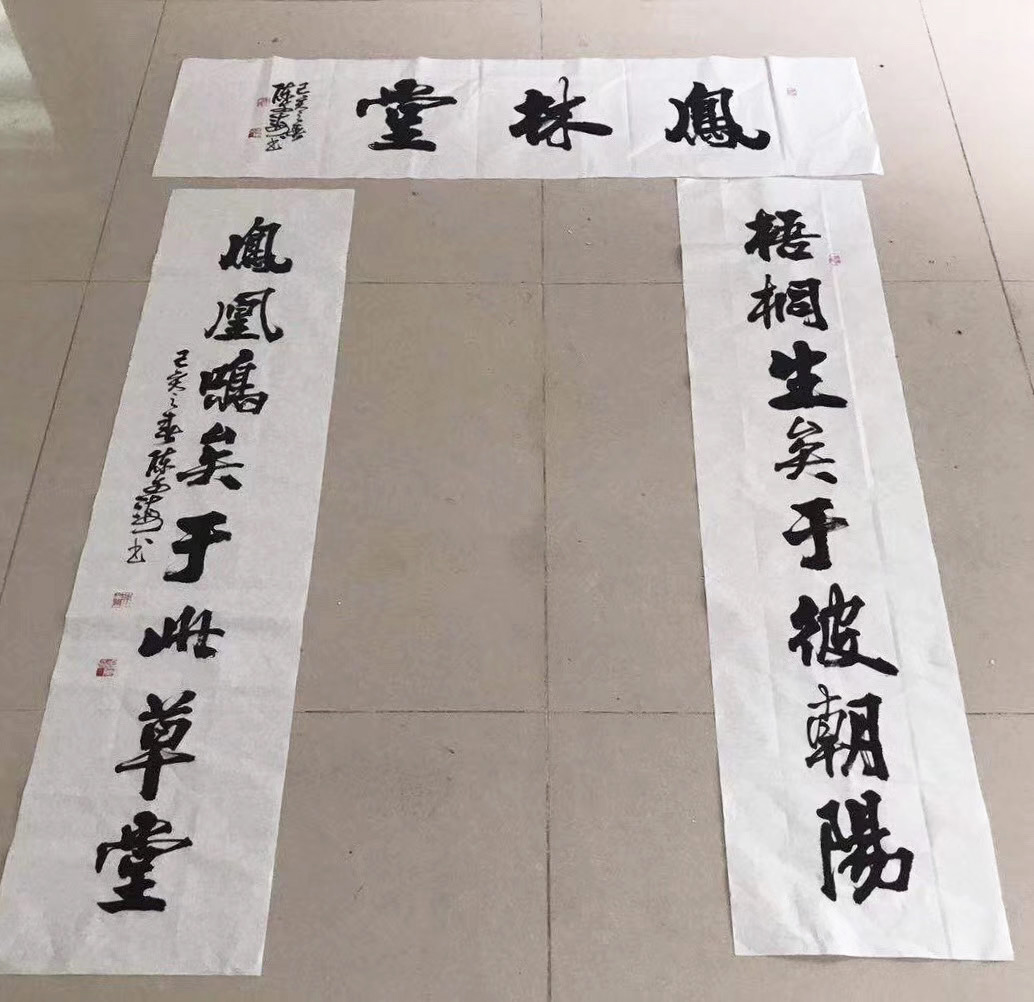 鳳林堂
己亥之春
陈 书
梧桐生矣于彼朝陽
鳳凰鳴矣于此草堂
己亥之春陈 书